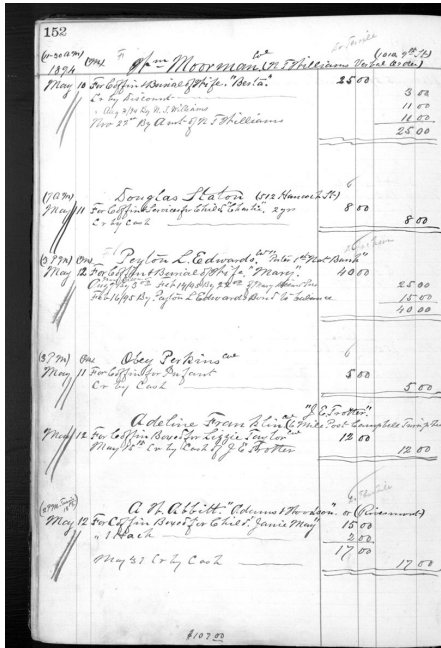 152
(11-30 am) Wm Moorman Col (N. T. Williams Verbal Order) (1012 9th St)
1894
May 10 For Coffin & Burial of Wife. "Besta" 25 00
Cr by Discount 3 00
" Aug 2/94 By N. T. Williams 11 00
Nov 22nd By Amt of N T Williams 11 00
25 00
(7 am) Douglas Staton (512 Hancock St)
May 11 For Coffin & Services for Child "Charlie" 2 yrs 8 00
Cr by Cash 8 00
(3 PM) Peyton L. Edwards Col Porter 1st Nat Bank"
May 12 For Coffin & Burial of Wife. "Mary" 40 00
25 00
Feb 16/95 By Peyton L Edwards Bond to balance 15 00
40 00
(3 PM) Obey Perkins Col
May 11 For Coffin for Infant 5 00
Cr by Cash 5 00
"J. C. Trotter"
Adeline Franklin Col Miles Post Campbell Turnpike
May 12 For Coffin Boxes for Lizzie Taylor Col 12 00
May 15th Cr by Cash of J C Trotter 12 00
A N. Abbitt. "Adams & Woodson" or (Rivermont)
May 12 For Coffin Boxes for Child. Janie May" 15 00
" 1 Hack 2 00
17 00
May 31 Cr by Cash 17 00
$107.00